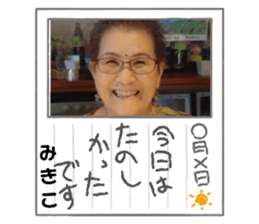 〇月×日
今日は
たのし
かった
です
みきこ